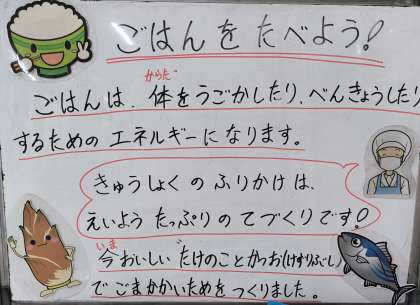 ごはんをたべよう!
ごはんは、体をうごかしたり、べんきょうしたり
からだ
するための エネルギーになります。
きゅうしょくのふりかけは、
えいよう たっぷりの てづくりです!
いま
今おいしい"たけのことかつお(けずりぶし)
で ごまかかいためをつくりました。